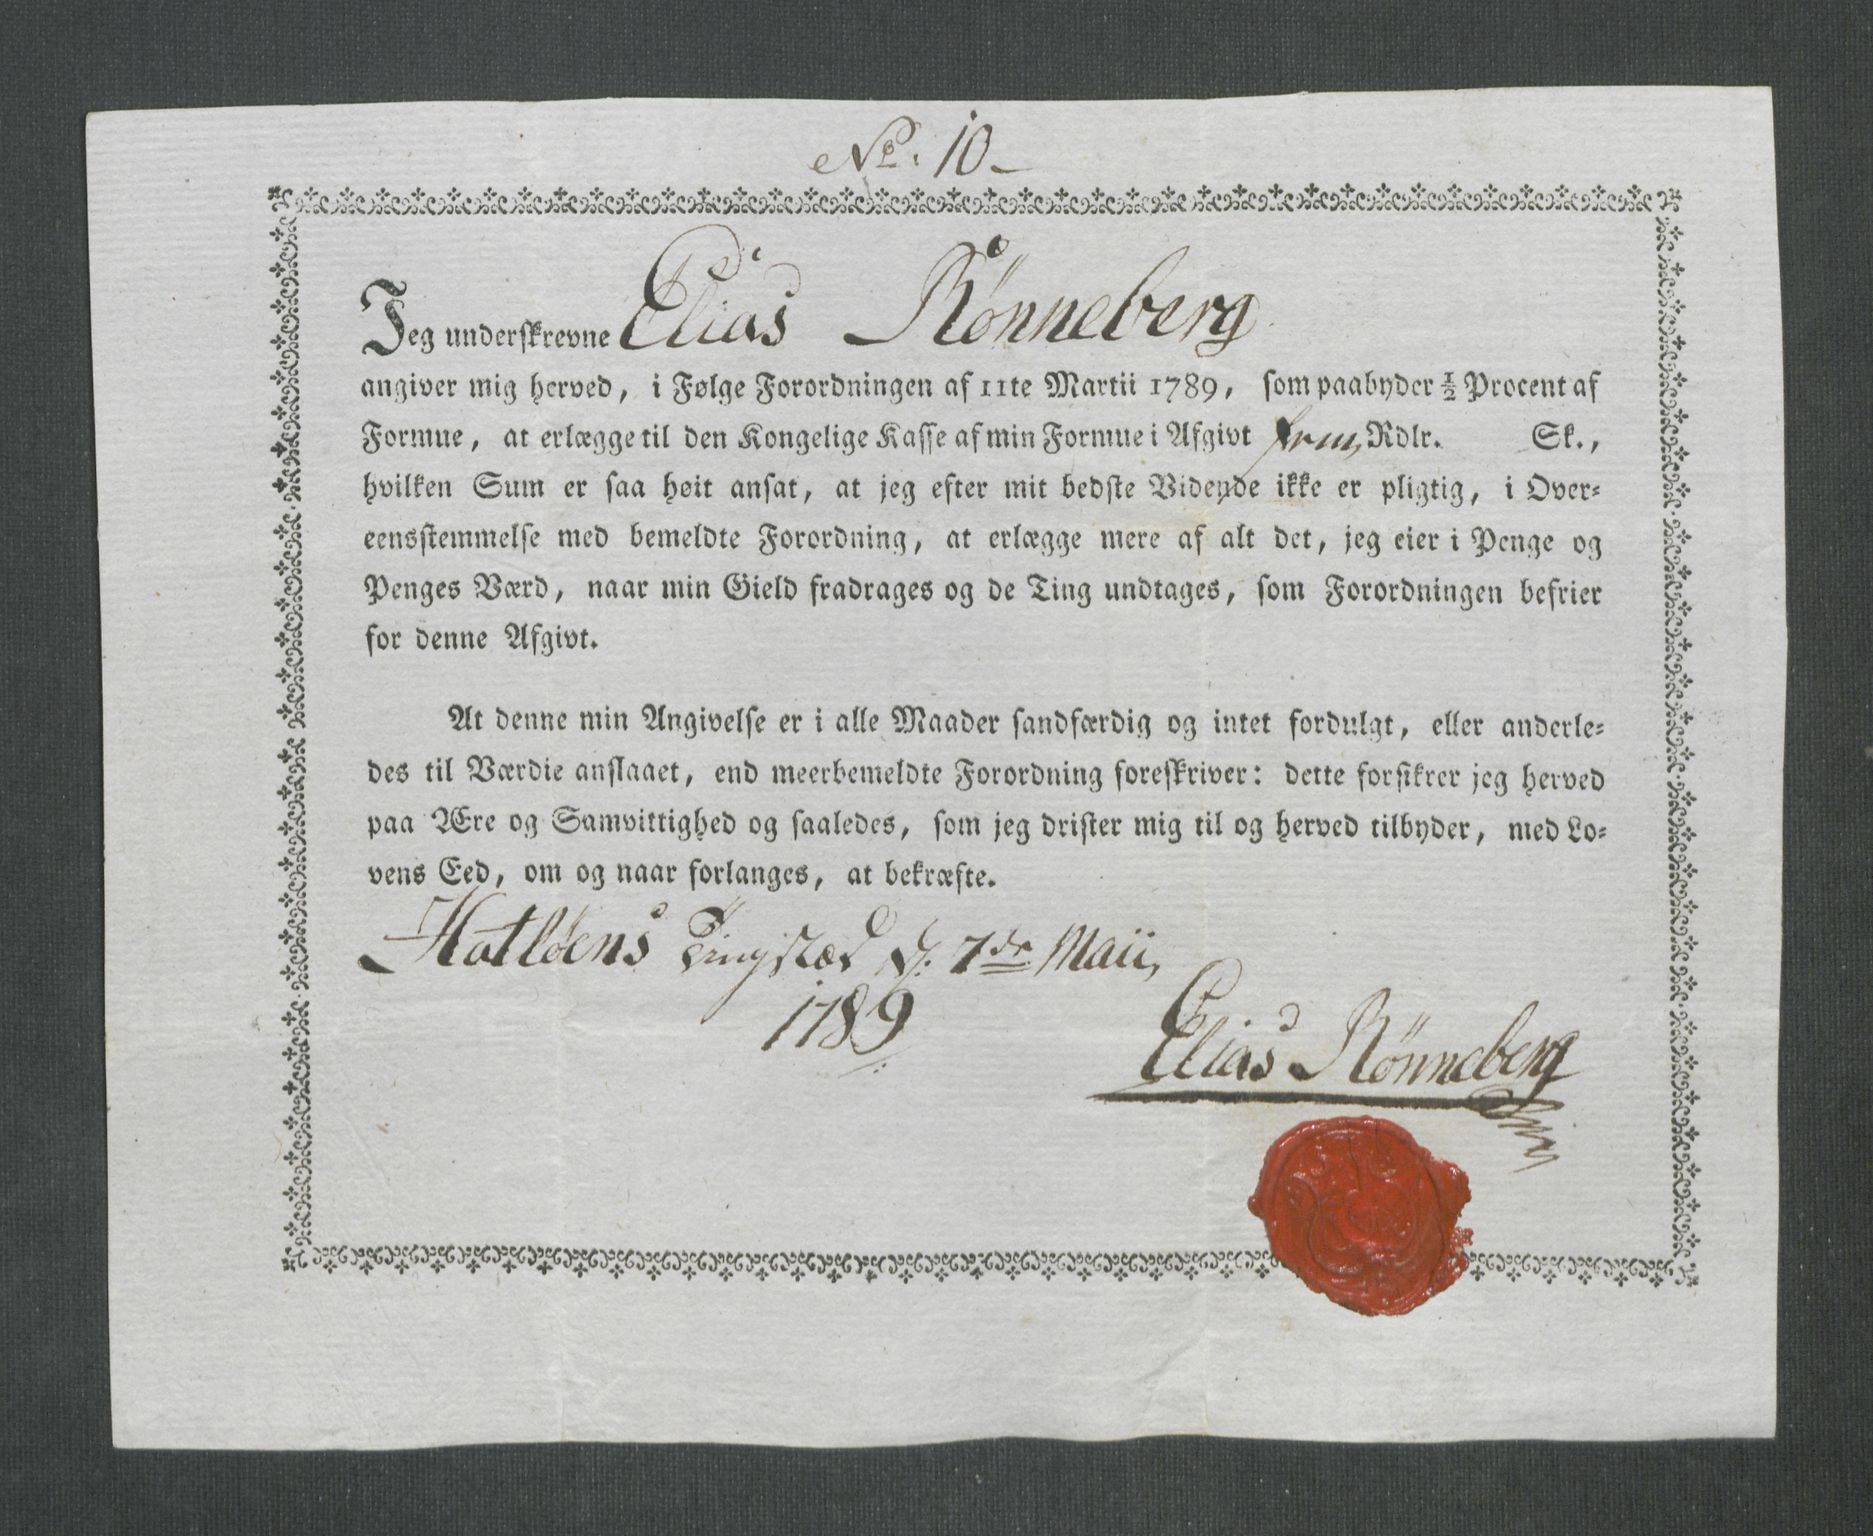 No. 10
Jeg underskrevne Elias Rönneberg
angiver mig herved, i Følge Forordningen af 11te Martii 1789, som paabyder ½ Procent af
Formue, at erlægge til den Kongelige Kasse af min Formue i Afgivt Rdlr. Sk.,
hvilken Sum er saa høit ansat, at jeg efter mit bedste Vidende ikke er pligtig, i Over=
eensstemmelse med bemeldte Forordning, at erlægge mere af alt det, jeg eier i Penge og
Penges Værd, naar min Gield fradrages og de Ting undtages, som Forordningen befrier
for denne Afgivt.
At denne min Angivelse er i alle Maader sandfærdig og intet fordulgt, eller anderle=
des til Værdie anslaaet, end meerbemeldte Forordning foreskriver: dette forsikrer jeg herved
paa Ære og Samvittighed og saaledes, som jeg drister mig til og herved tilbyder, med Lo=
vens Eed, om og naar forlanges, at bekræfte.
Hatløens Tingstæd d. 7de Maii
1789
Elias Rönneberg